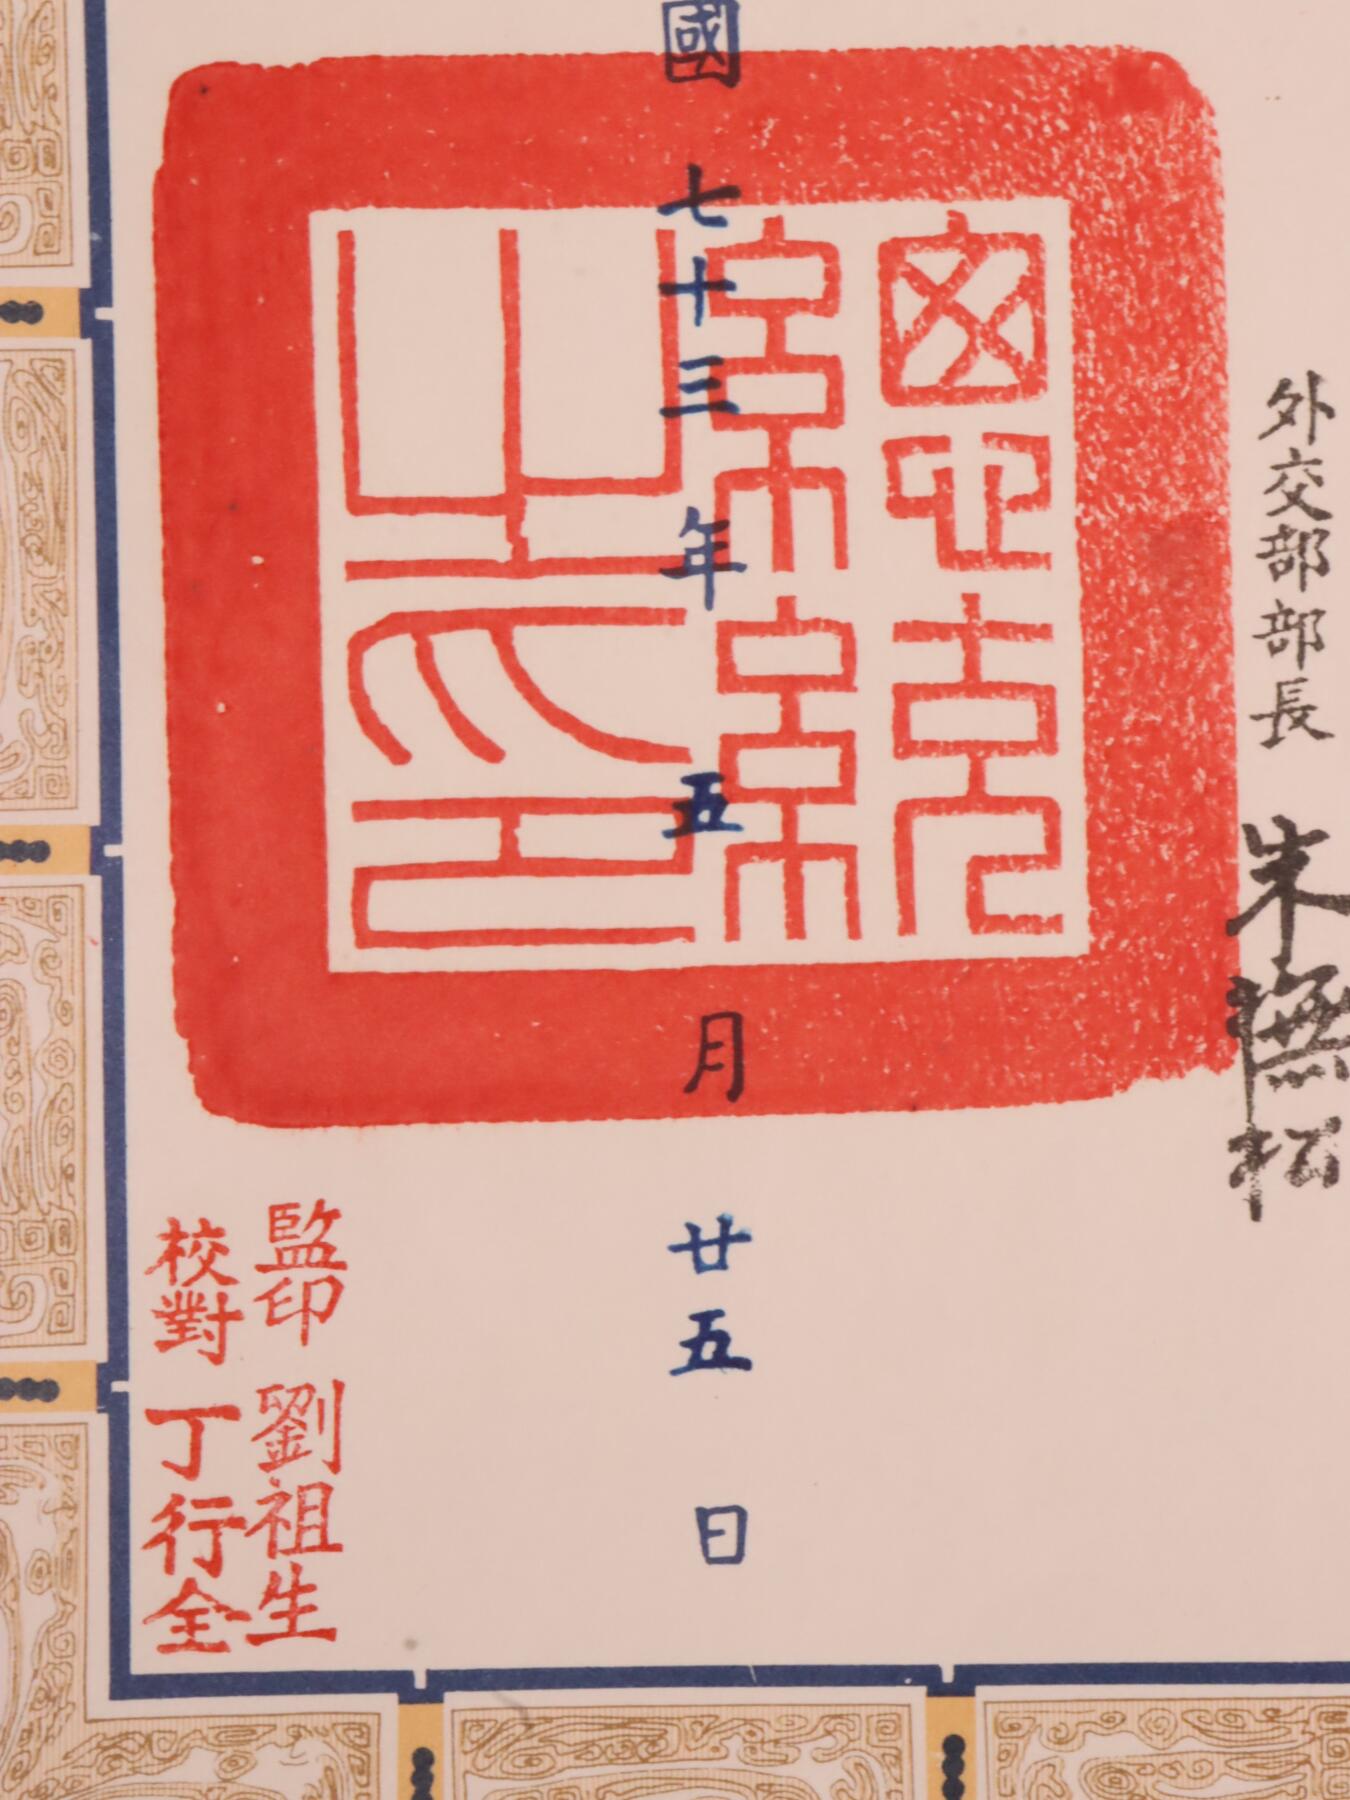 外交部部長 朱撫松
國七十三年五月廿五日
總統
之印
監印 劉祖生
校對 丁行全